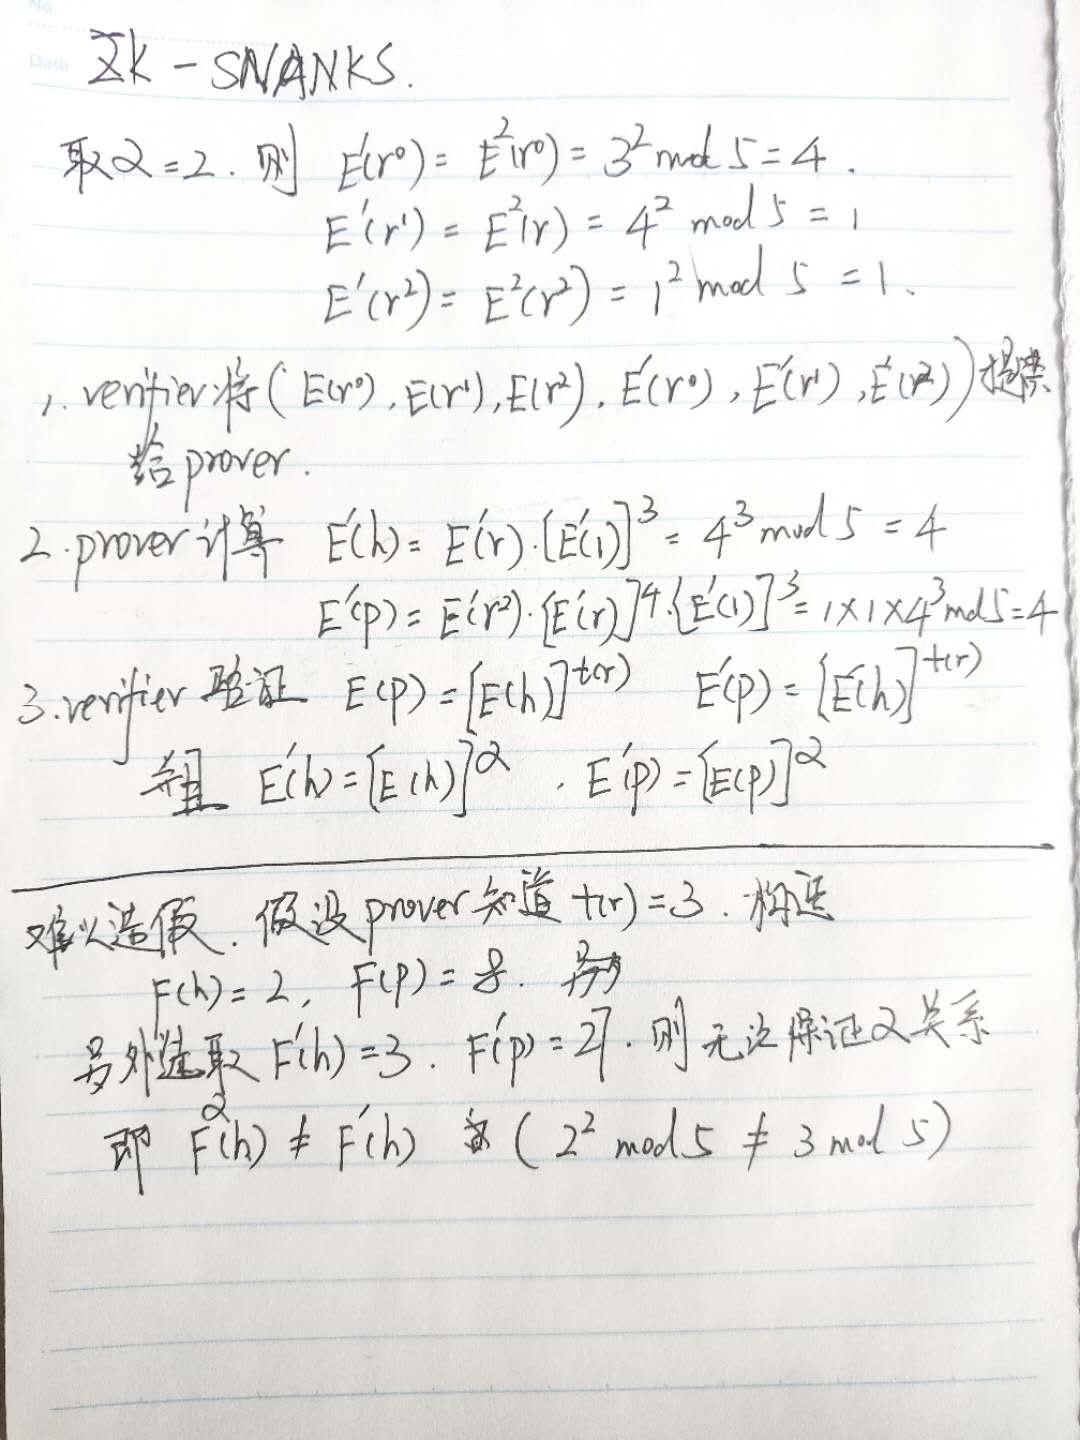 No.
Date
ZK-SNANKS.
取α=2. 则 E'(r⁰)= E²(r⁰)= 3² mod 5=4.
E'(r¹) = E²(r) = 4² mod 5 = 1
E'(r²)= E²(r²) = 1² mod 5 = 1.
1. verifier将(E(r⁰),E(r¹),E(r²),E'(r⁰),E'(r¹),E'(r²))提供
给prover.
2.prover计算 E'(h)= E'(r)·[E'(1)]³ = 4³ mod 5 = 4
E'(p)= E'(r²)·[E'(r)]⁴·[E'(1)]³=1×1×4³ mod 5=4
3.verifier 验证 E(p)=[E(h)]^t(r) E'(p)=[E'(h)]^t(r)
并且 E'(h)=[E(h)]^α . E'(p)=[E(p)]^α
难以造假. 假设prover知道 t(r)=3. 构造
F(h)=2, F(p)=8.
另外选取F'(h)=3. F'(p)=27. 则无法保证α关系
即 F^α(h) ≠ F'(h) (2² mod 5 ≠ 3 mod 5)